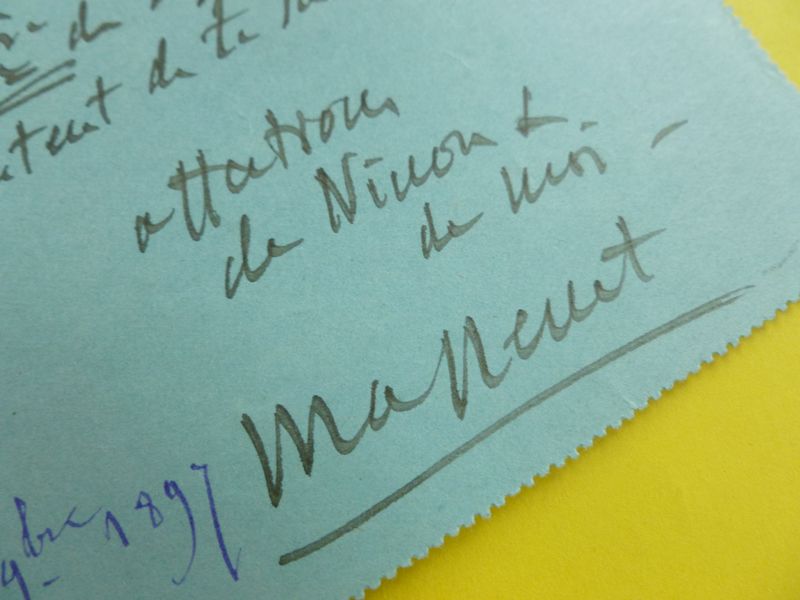 de
tent de ta
attatrou
de Ninon &
de moi -
Massenet
9bre 1897